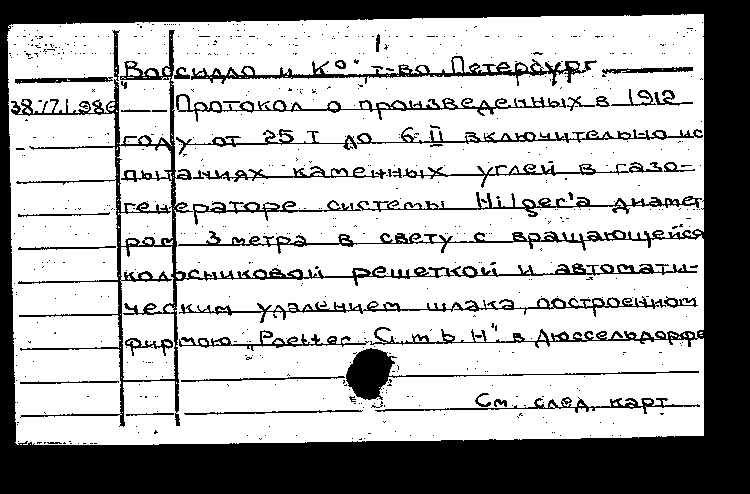 1
„Воссидло и Ко", т-во, Петербург.
38.17.1.986 Протокол о произведенных в 1912
году от 25 I до 6.II включительно ис
пытаниях каменных углей в газо-
генераторе системы Hilger'a диамет
ром 3 метра в свету с вращающейся
колосниковой решеткой и автомати-
ческим удалением шлака, построенном
фирмою „Poetter G.m.b.H". в Дюссельдорфе
См. след. карт.